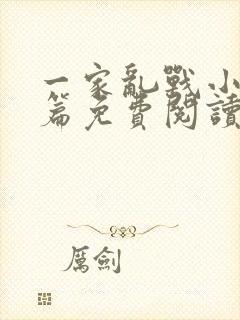 一家亂戰小
篇免費閱讀
厲劍